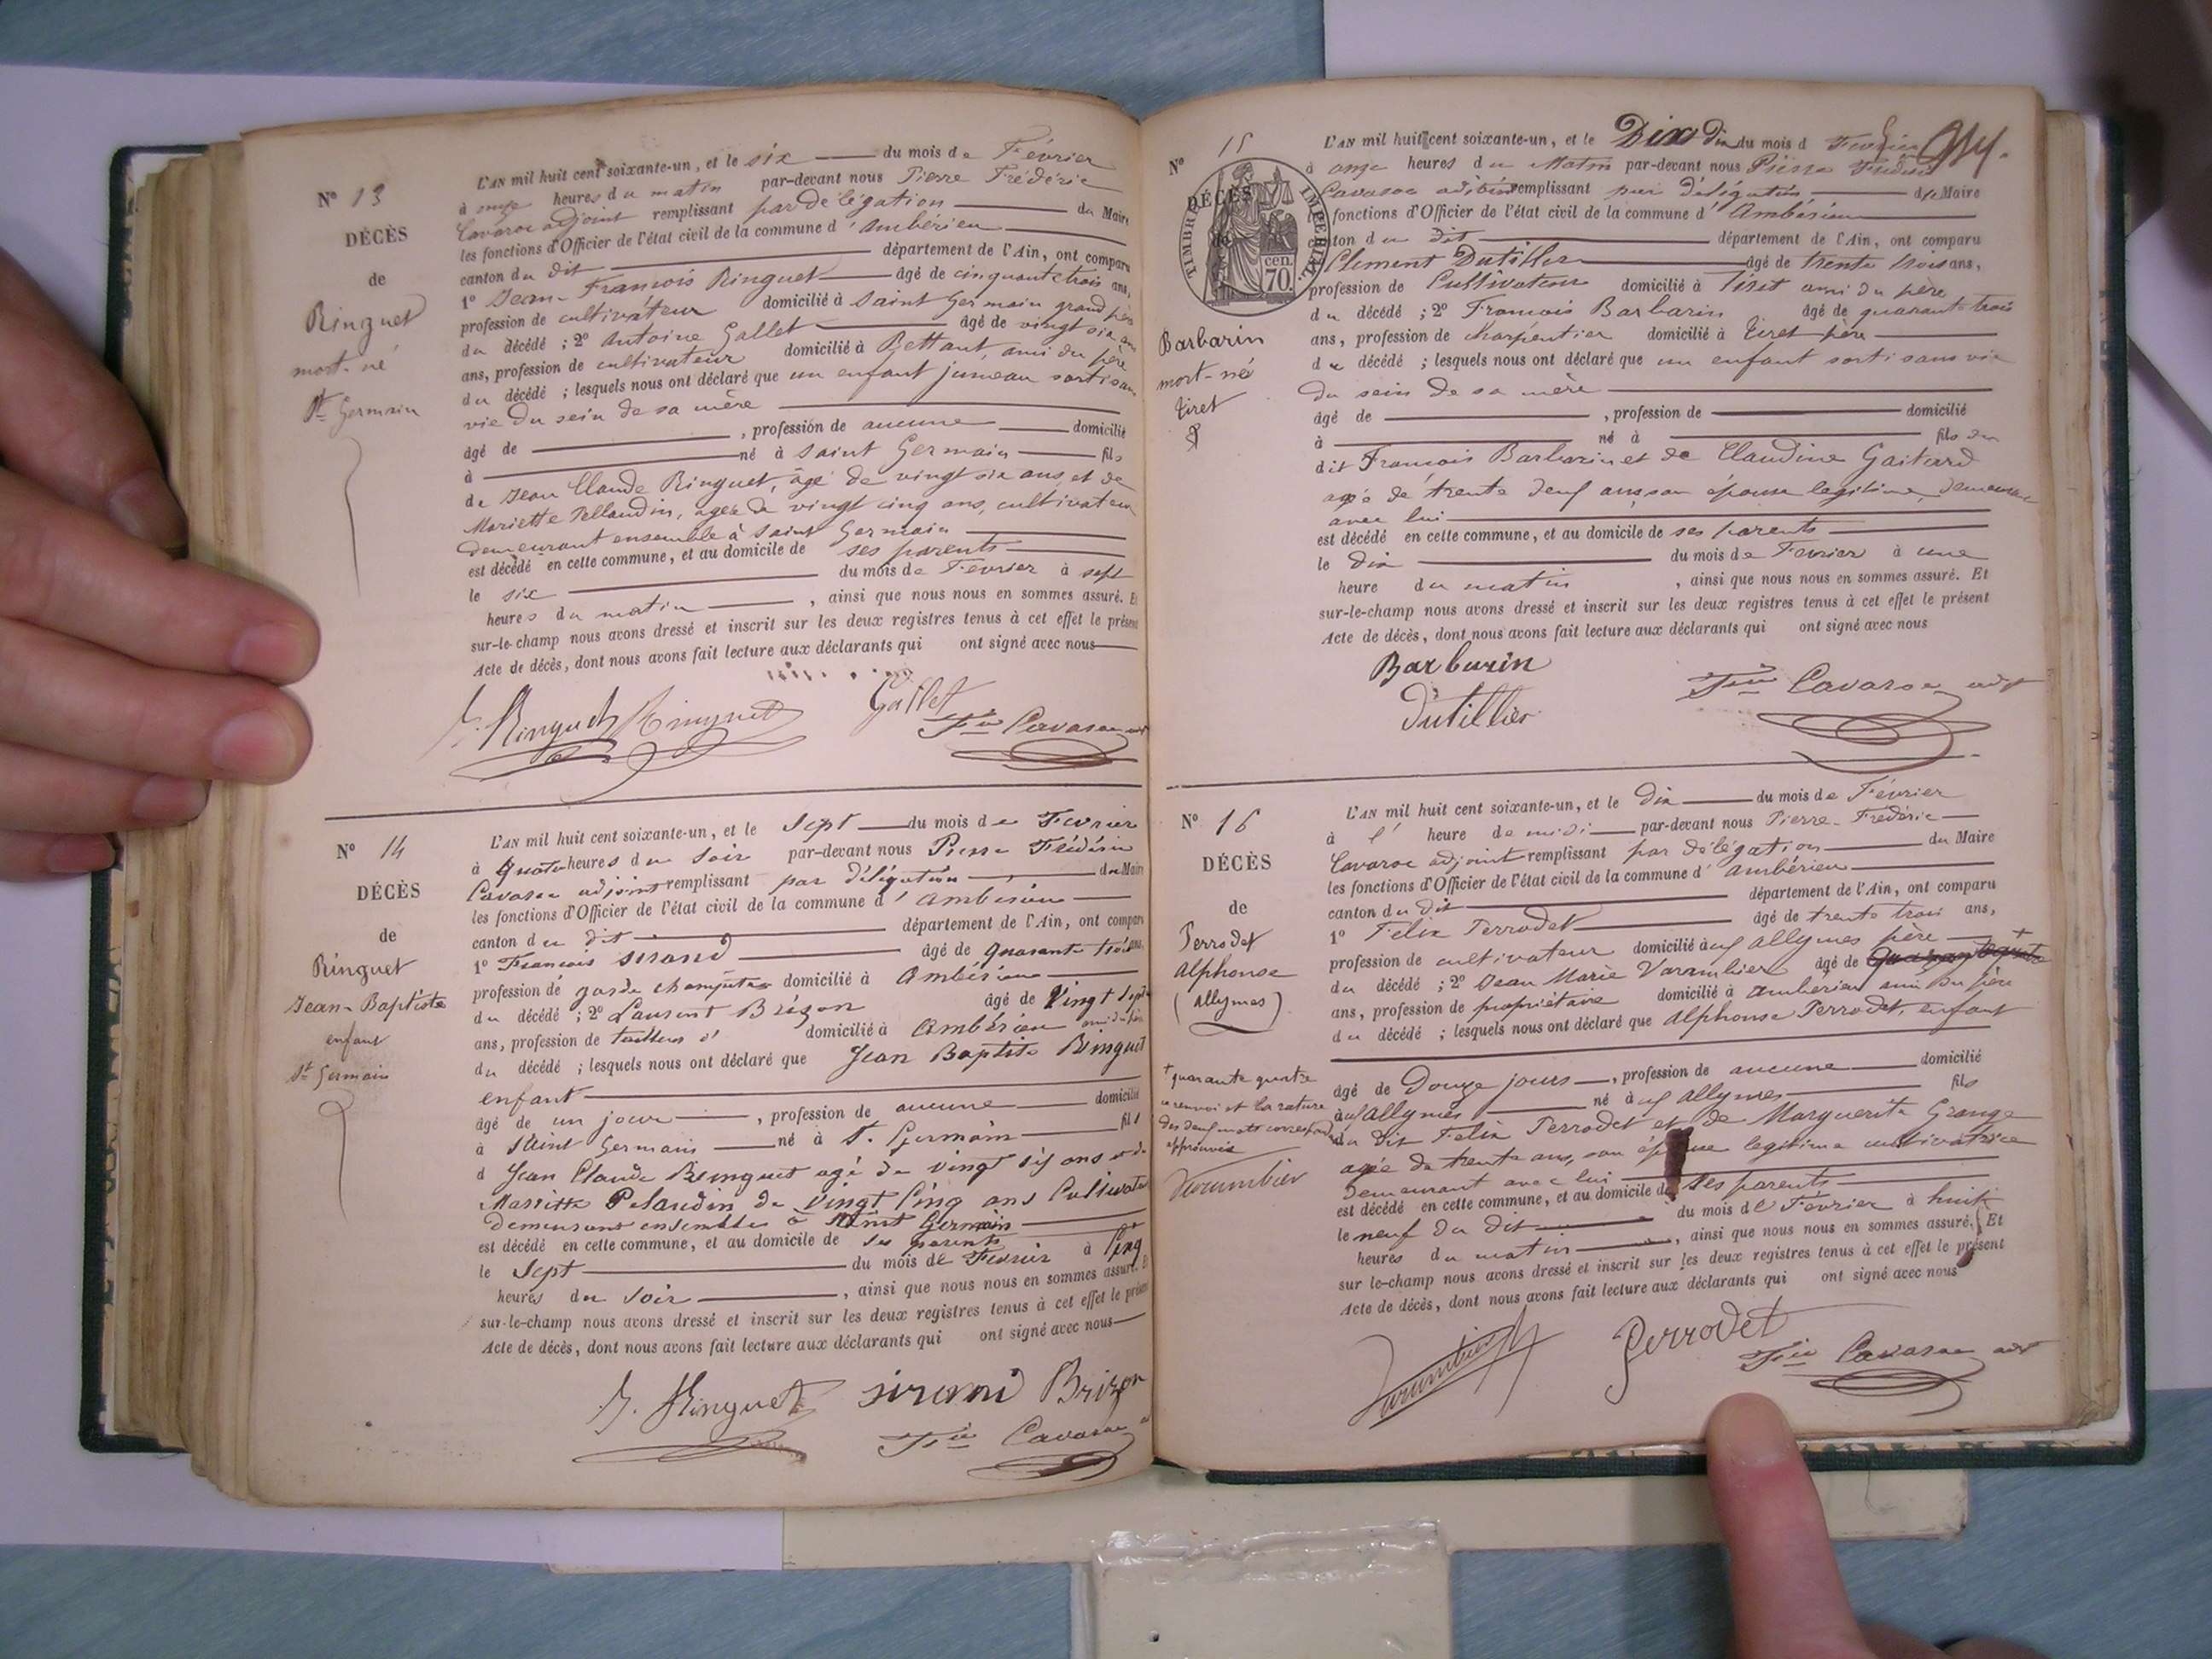 N° 13
DÉCÈS
de
Ringuet
mort-né
St Germain
L'AN mil huit cent soixante-un, et le six du mois de Février
à onze heures du matin par-devant nous Pierre Frédéric
Cavaroc adjoint remplissant par délégation du Maire
les fonctions d'Officier de l'état civil de la commune d'Ambérieu
canton du dit département de l'Ain, ont comparu
1° Jean-François Ringuet âgé de cinquante trois ans,
profession de cultivateur domicilié à Saint Germain grand père
du décédé ; 2° Antoine Gallet âgé de vingt six
ans, profession de cultivateur domicilié à Bettant, ami du père
du décédé ; lesquels nous ont déclaré que un enfant jumeau sorti sans
vie du sein de sa mère
âgé de , profession de aucune domicilié
à né à Saint Germain fils
de Jean Claude Ringuet, âgé de vingt six ans et de
Mariette Pellaudin, agée de vingt cinq ans, cultivateurs
demeurant ensemble à Saint Germain
est décédé en cette commune, et au domicile de ses parents
le six du mois de Février à sept
heures du matin , ainsi que nous nous en sommes assuré. Et
sur-le-champ nous avons dressé et inscrit sur les deux registres tenus à cet effet le présent
Acte de décès, dont nous avons fait lecture aux déclarants qui ont signé avec nous
Ringuet Ringuet Gallet
Fric Cavaroc adt
N° 14
DÉCÈS
de
Ringuet
Jean-Baptiste
enfant
St Germain
L'AN mil huit cent soixante-un, et le Sept du mois de Fevrier
à Quatre heures du Soir par-devant nous Pierre Frédéric
Cavaroc adjoint remplissant par délégation du Maire
les fonctions d'Officier de l'état civil de la commune d'Ambérieu
canton du dit département de l'Ain, ont comparu
1° François Sirand âgé de quarante trois ans,
profession de garde champêtre domicilié à Ambérieu
du décédé ; 2° Laurent Brizon âgé de Vingt Sept
ans, profession de tailleur d' domicilié à Ambérieu ami du père
du décédé ; lesquels nous ont déclaré que Jean Baptiste Ringuet
enfant
âgé de un jour , profession de aucune domicilié
à Saint Germain né à St Germain fils
d Jean Claude Ringuet agé de vingt six ans et de
Mariette Pelaudin de Vingt Cinq ans Cultivateurs
demeurant ensemble à Saint Germain
est décédé en cette commune, et au domicile de ses parents
le Sept du mois de Fevrier à Cinq
heures du Soir , ainsi que nous nous en sommes assuré. Et
sur-le-champ nous avons dressé et inscrit sur les deux registres tenus à cet effet le présent
Acte de décès, dont nous avons fait lecture aux déclarants qui ont signé avec nous
J. Ringuet Sirand Brizon
Fric Cavaroc
N° 15
DÉCÈS
de
TIMBRE IMPERIAL
cen.
70.
Barbarin
mort-né
Tiret
L'AN mil huit cent soixante-un, et le Dix du mois d Fevrier
à onze heures du Matin par-devant nous Pierre Frédéric
Cavaroc adjoint remplissant par délégation du Maire
les fonctions d'Officier de l'état civil de la commune d'Ambérieu
canton du dit département de l'Ain, ont comparu
Clement Dutillier âgé de trente trois ans,
profession de Cultivateur domicilié à Tiret ami du père
du décédé ; 2° François Barbarin âgé de quarante trois
ans, profession de charpentier domicilié à Tiret père
du décédé ; lesquels nous ont déclaré que un enfant sorti sans vie
du sein de sa mère
âgé de , profession de domicilié
à né à fils du
dit François Barbarin et de Claudine Gaitard
agée de trente neuf ans, son épouse legitime, demeurant
avec lui
est décédé en cette commune, et au domicile de ses parents
le dix du mois de Fevrier à une
heure du matin , ainsi que nous nous en sommes assuré. Et
sur-le-champ nous avons dressé et inscrit sur les deux registres tenus à cet effet le présent
Acte de décès, dont nous avons fait lecture aux déclarants qui ont signé avec nous
Barbarin
Dutillier
Fric Cavaroc adt
N° 16
DÉCÈS
de
Perrodet
Alphonse
(Allymes)
+ quarante quatre
ce renvoi et la rature
des deux mots correspondants
approuvés
Varambier
L'AN mil huit cent soixante-un, et le dix du mois de Février
à l' heure de midi par-devant nous Pierre-Frédéric
Cavaroc adjoint remplissant par délégation du Maire
les fonctions d'Officier de l'état civil de la commune d'Ambérieu
canton du dit département de l'Ain, ont comparu
1° Felix Perrodet âgé de trente trois ans,
profession de cultivateur domicilié aux Allymes père
du décédé ; 2° Jean Marie Varambier âgé de +
ans, profession de propriétaire domicilié à Ambérieu ami du père
du décédé ; lesquels nous ont déclaré que Alphonse Perrodet, enfant
âgé de Douze jours , profession de aucune domicilié
aux Allymes né aux Allymes fils
du dit Felix Perrodet et de Marguerite Grange
agée de trente ans, son épouse legitime cultivatrice
demeurant avec lui
est décédé en cette commune, et au domicile de ses parents
le neuf du dit du mois de Février à huit
heures du matin , ainsi que nous nous en sommes assuré. Et
sur le-champ nous avons dressé et inscrit sur les deux registres tenus à cet effet le présent
Acte de décès, dont nous avons fait lecture aux déclarants qui ont signé avec nous
Varambier Perrodet
Fric Cavaroc adt